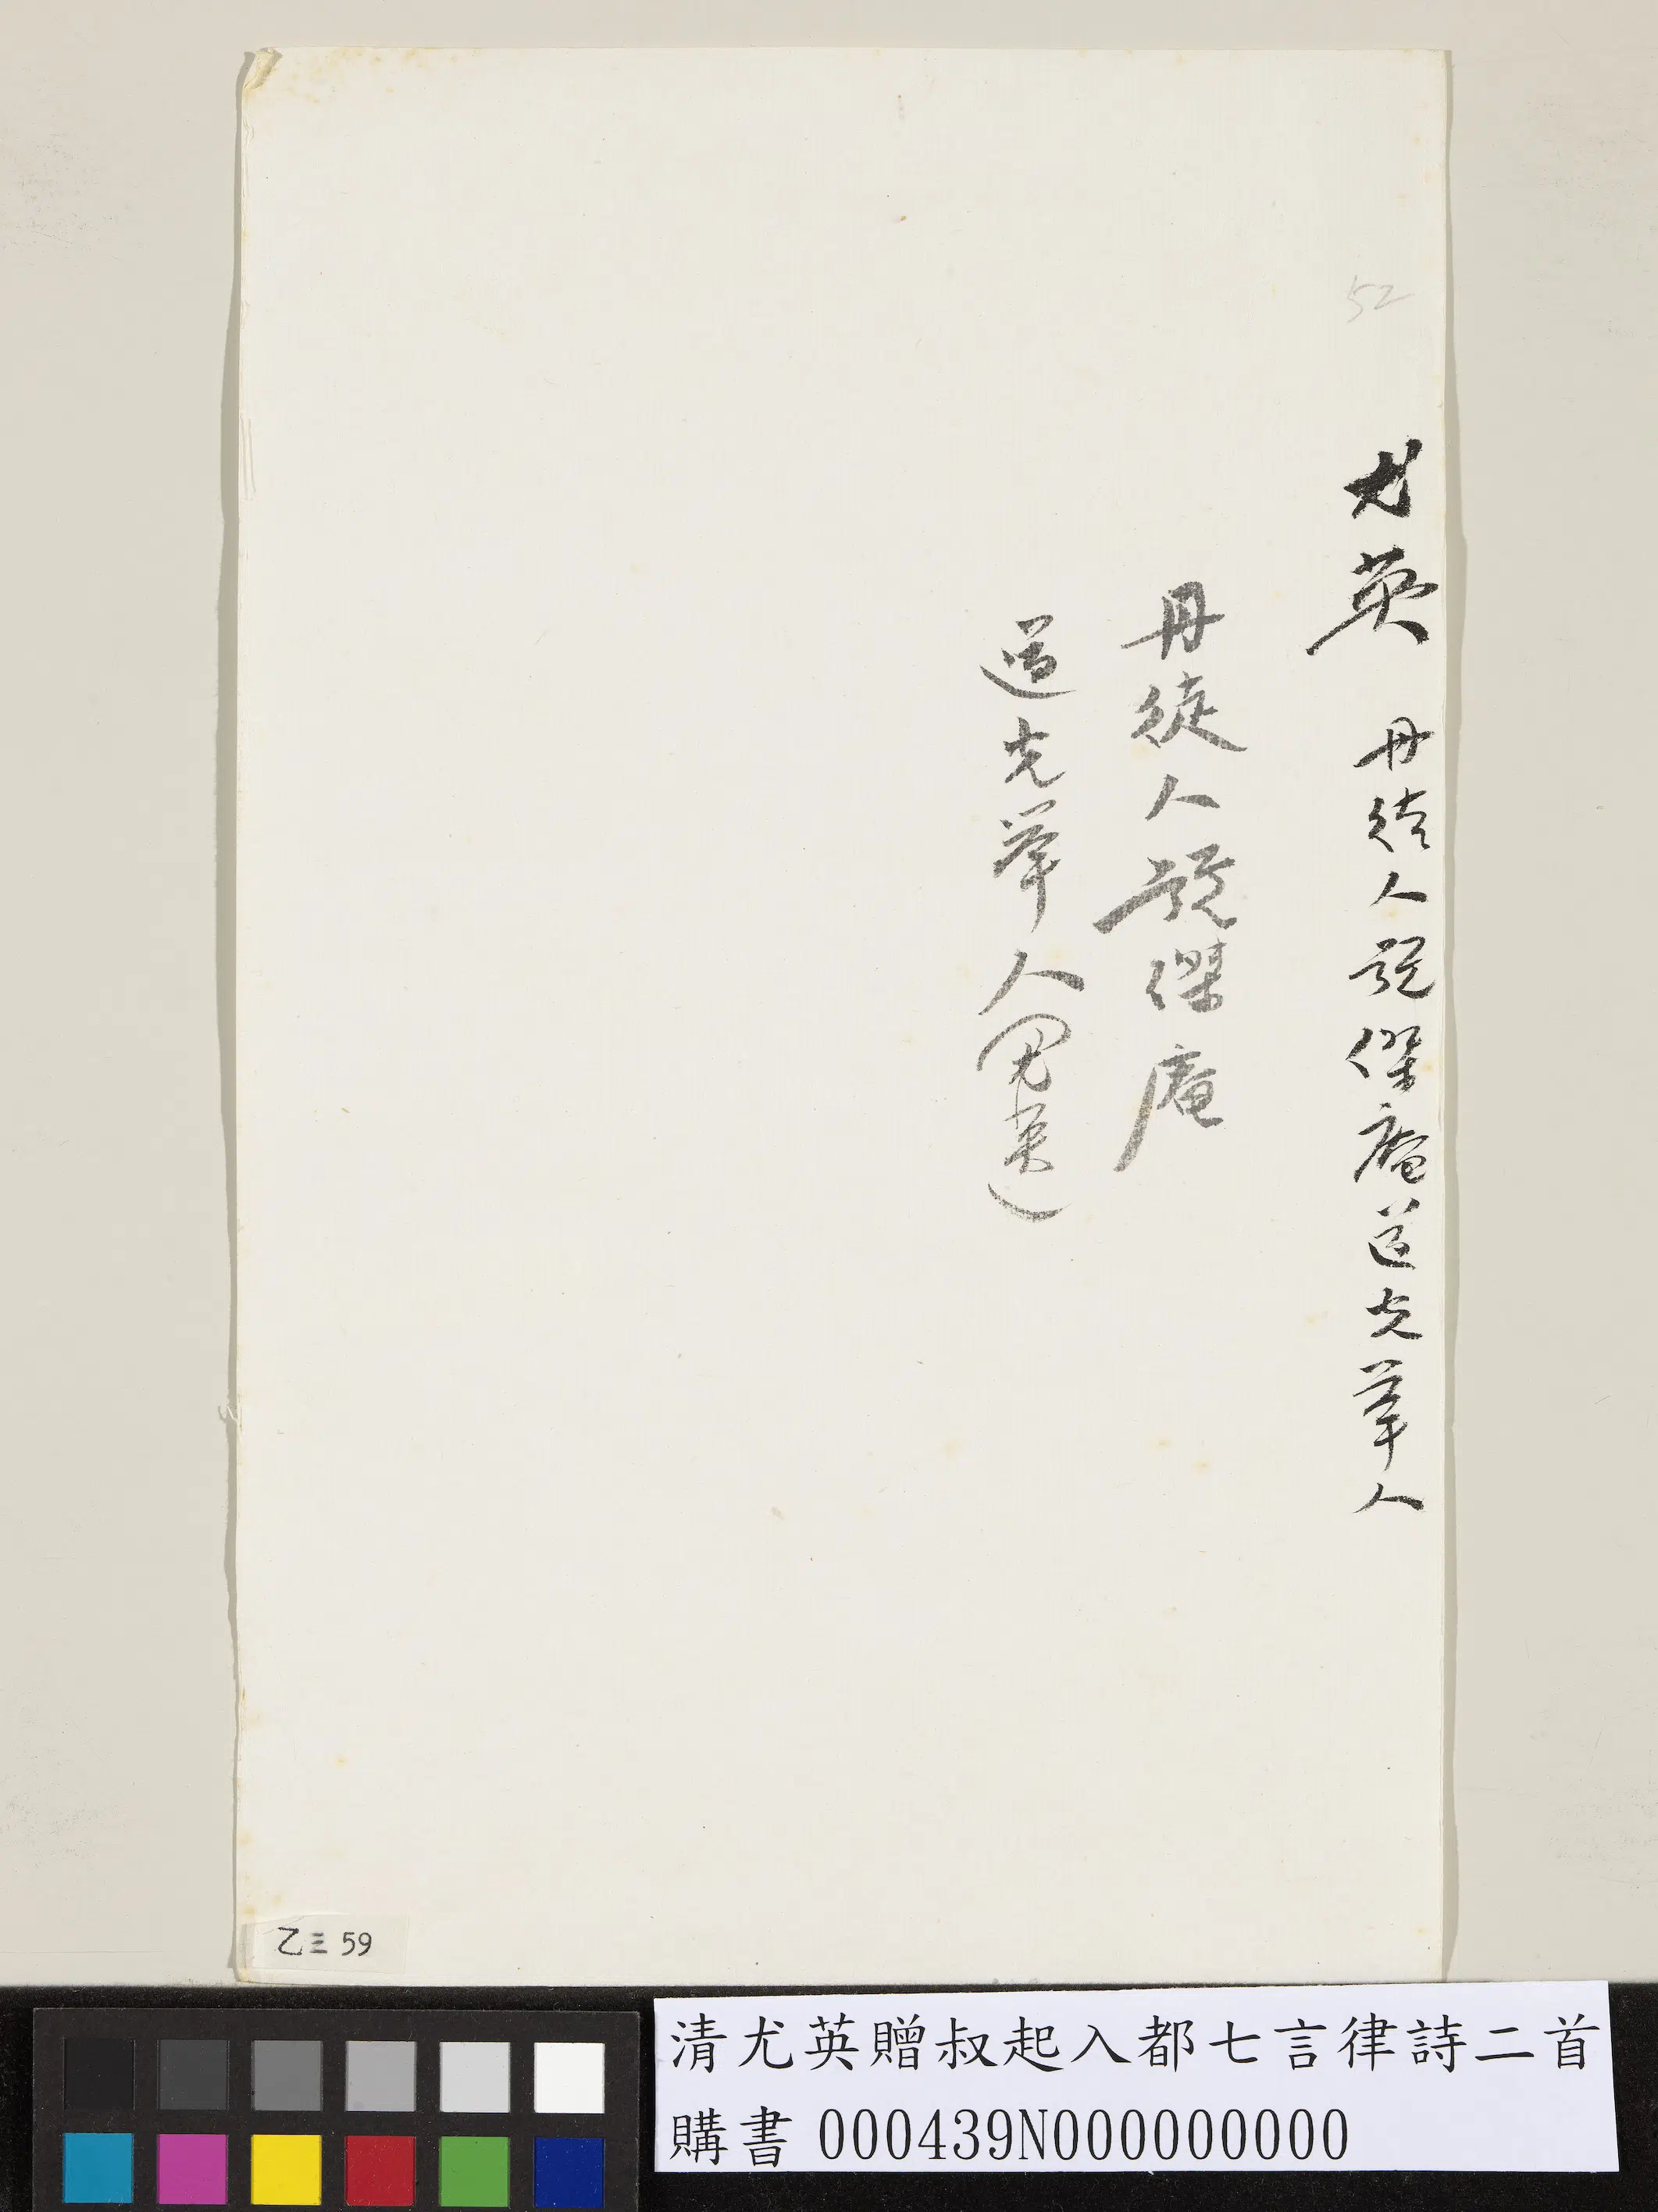 52
尤英 丹徒人號傑庵道光舉人
丹徒人號傑庵
道光舉人(尤英)
乙三 59
清尤英贈叔起入都七言律詩二首
購書 000439N000000000